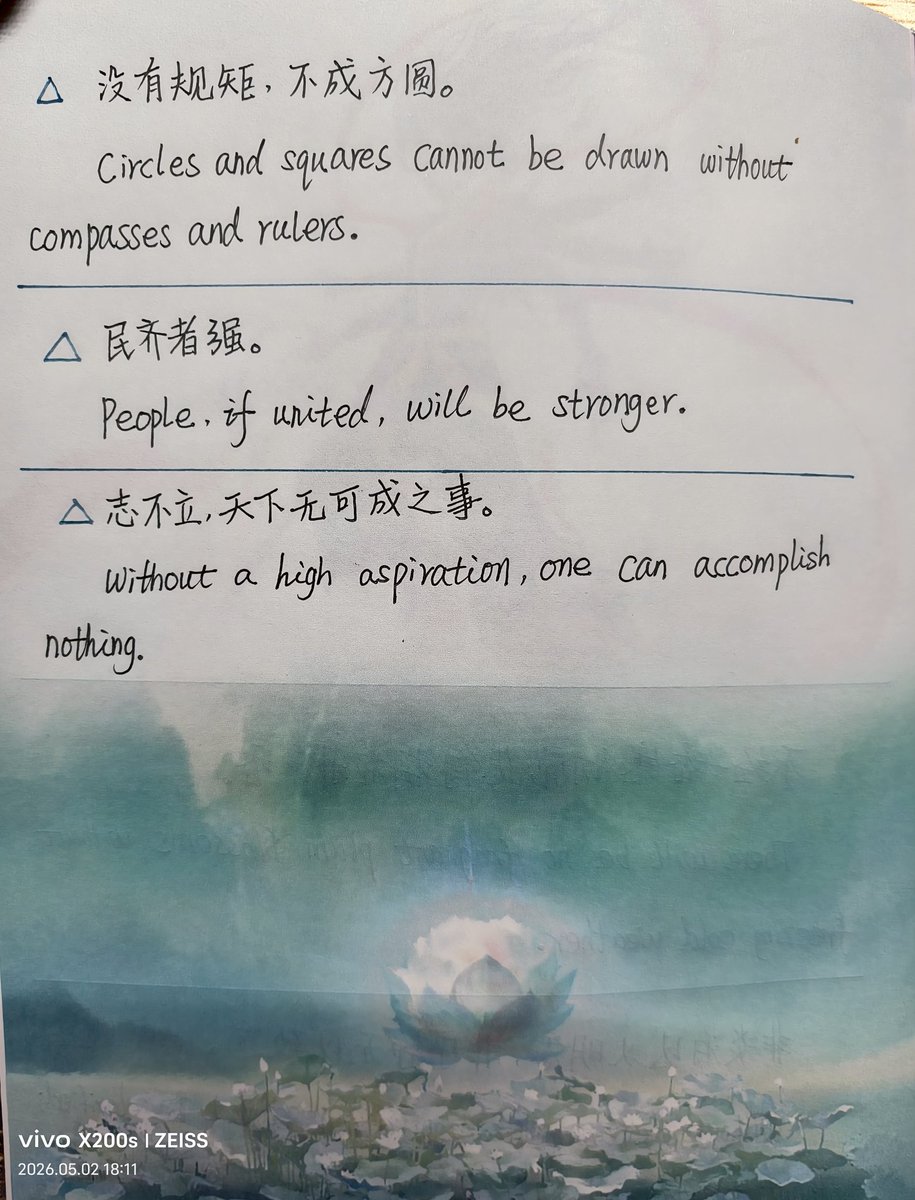 △ 没有规矩，不成方圆。
Circles and squares cannot be drawn without
compasses and rulers.
△ 民齐者强。
People, if united, will be stronger.
△ 志不立，天下无可成之事。
Without a high aspiration, one can accomplish
nothing.
vivo X200s | ZEISS
2026.05.02 18:11